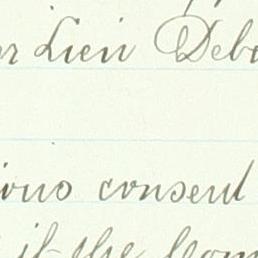 or Lien Deb
ious consent
if the Com